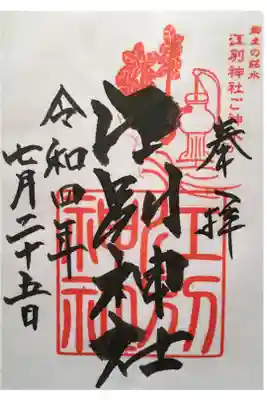 郷土の銘水
江別神社ご神水
奉拝
江別神社
江別
神社
令和四年
七月二十五日